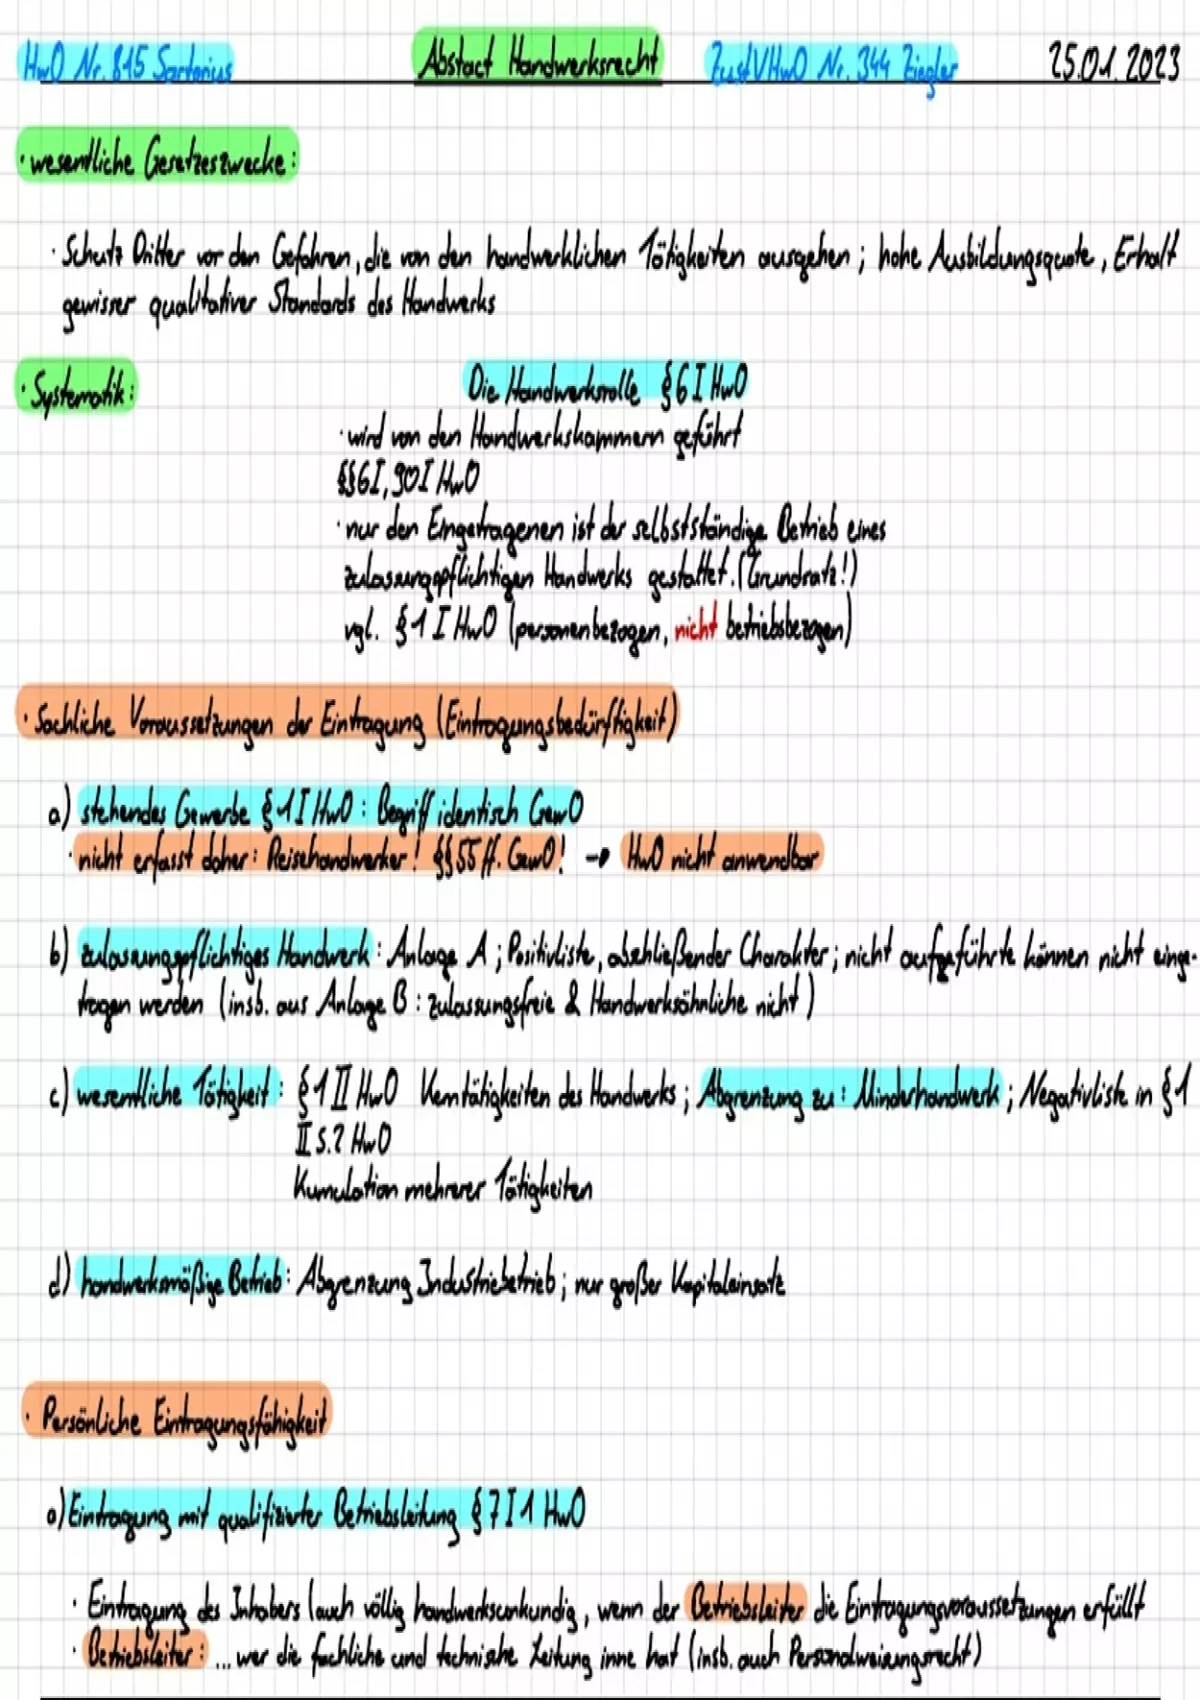 HwO Nr. 815 Sartorius Abstact Handwerksrecht ZustVHwO Nr. 344 Ziegler 25.01.2023
· wesentliche Gesetzeszwecke:
· Schutz Dritter vor den Gefahren, die von den handwerklichen Tätigkeiten ausgehen; hohe Ausbildungsquote, Erhalt
gewisser qualitativer Standards des Handwerks
· Systematik: Die Handwerksrolle § 6 I HwO
· wird von den Handwerkskammern geführt
§§ 6 I, 90 I HwO
· nur den Eingetragenen ist der selbstständige Betrieb eines
zulassungspflichtigen Handwerks gestattet. (Grundsatz!)
vgl. § 1 I HwO (personenbezogen, nicht betriebsbezogen)
· Sachliche Voraussetzungen der Eintragung (Eintragungsbedürftigkeit)
a) stehendes Gewerbe § 1 I HwO: Begriff identisch GewO
· nicht erfasst daher: Reisehandwerker! §§ 55 ff. GewO! → HwO nicht anwendbar
b) zulassungspflichtiges Handwerk: Anlage A; Positivliste, abschließender Charakter; nicht aufgeführte können nicht einge-
tragen werden (insb. aus Anlage B: zulassungsfreie & Handwerksähnliche nicht)
c) wesentliche Tätigkeit: § 1 II HwO Kerntätigkeiten des Handwerks; Abgrenzung zu: Minderhandwerk; Negativliste in § 1
II S. 2 HwO
Kumulation mehrerer Tätigkeiten
d) handwerksmäßige Betrieb: Abgrenzung Industriebetrieb; nur großer Kapitaleinsatz
· Persönliche Eintragungsfähigkeit
a) Eintragung mit qualifizierter Betriebsleitung § 7 I 1 HwO
· Eintragung des Inhabers (auch völlig handwerksunkundig, wenn der Betriebsleiter die Eintragungsvoraussetzungen erfüllt
· Betriebsleiter: ... wer die fachliche und technische Leitung inne hat (insb. auch Personalweisungsrecht)